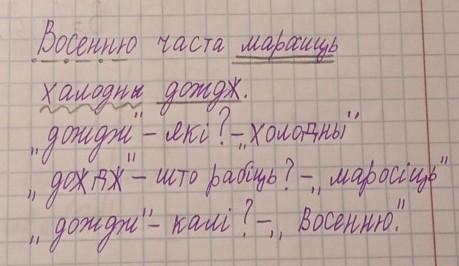 Восенню часта марахиць
халодны дождж.
„дождж" – які? – „холодны"
„дождж" – што рабіць? – „маросіць"
„дождж" – калі? – „Восенню."